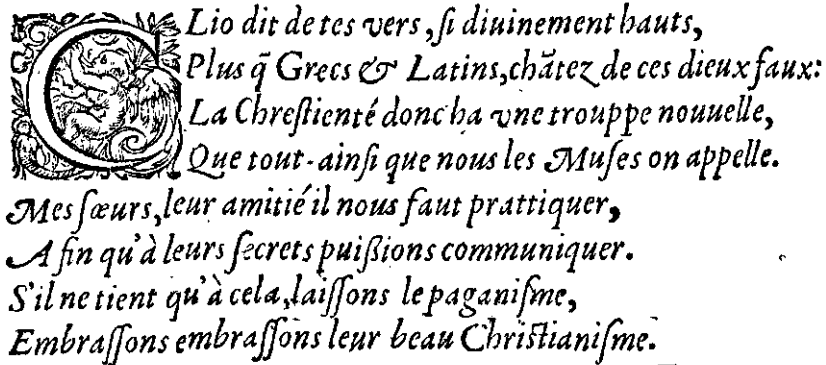 CLio dit de tes vers, ſi diuinement hauts,
Plus q̃ Grecs & Latins, chãtez de ces dieux faux:
La Chreſtienté donc ha vne trouppe nouuelle,
Que tout-ainſi que nous les Muſes on appelle.
Mes ſœurs, leur amitié il nous faut prattiquer,
A fin qu'à leurs ſecrets puiſsions communiquer.
S'il ne tient qu'à cela, laiſſons le paganiſme,
Embraſſons embraſſons leur beau Chriſtianiſme.